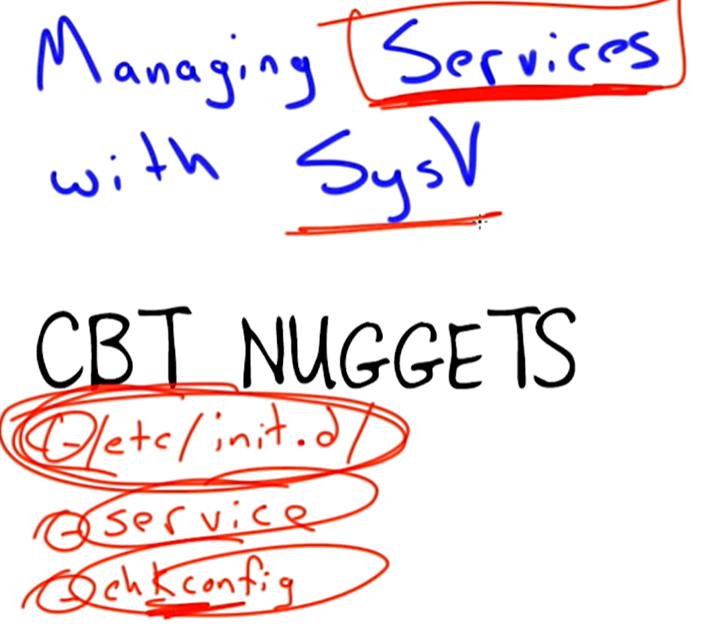 Managing Services
with SysV
CBT NUGGETS
/etc/init.d/
service
chkconfig